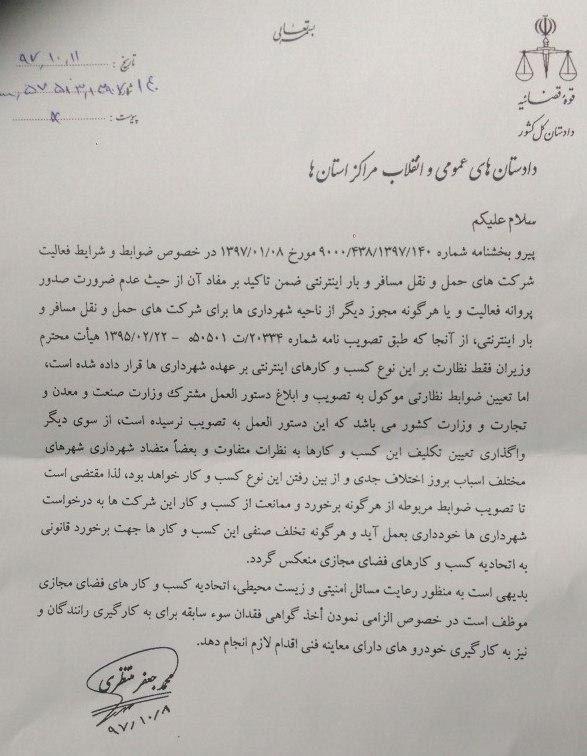 بسمه تعالی
قوه قضائیه
دادستان کل کشور
تاریخ : ۹۷،۱۰،۱۱
پیوست :
دادستان های عمومی و انقلاب مراکز استان ها
سلام علیکم
پیرو بخشنامه شماره ۹۰۰۰/۴۳۸/۱۳۹۷/۱۴۰ مورخ ۱۳۹۷/۰۱/۰۸ در خصوص ضوابط و شرایط فعالیت
شرکت های حمل و نقل مسافر و بار اینترنتی ضمن تاکید بر مفاد آن از حیث عدم ضرورت صدور
پروانه فعالیت و یا هرگونه مجوز دیگر از ناحیه شهرداری ها برای شرکت های حمل و نقل مسافر و
بار اینترنتی، از آنجا که طبق تصویب نامه شماره ۲۰۳۳۴/ت ۵۰۵۰۱ه - ۱۳۹۵/۰۲/۲۲ هیأت محترم
وزیران فقط نظارت بر این نوع کسب و کارهای اینترنتی بر عهده شهرداری ها قرار داده شده است،
اما تعیین ضوابط نظارتی موکول به تصویب و ابلاغ دستور العمل مشترک وزارت صنعت و معدن و
تجارت و وزارت کشور می باشد که این دستور العمل به تصویب نرسیده است، از سوی دیگر
واگذاری تعیین تکلیف این کسب و کارها به نظرات متفاوت و بعضاً متضاد شهرداری شهرهای
مختلف اسباب بروز اختلاف جدی و از بین رفتن این نوع کسب و کار خواهد بود، لذا مقتضی است
تا تصویب ضوابط مربوطه از هرگونه برخورد و ممانعت از کسب و کار این شرکت ها به درخواست
شهرداری ها خودداری بعمل آید و هرگونه تخلف صنفی این کسب و کار ها جهت برخورد قانونی
به اتحادیه کسب و کارهای فضای مجازی منعکس گردد.
بدیهی است به منظور رعایت مسائل امنیتی و زیست محیطی، اتحادیه کسب و کار های فضای مجازی
موظف است در خصوص الزامی نمودن أخذ گواهی فقدان سوء سابقه برای به کارگیری رانندگان و
نیز به کارگیری خودرو های دارای معاینه فنی اقدام لازم انجام دهد.
محمد جعفر منتظری
۹۷/۱۰/۸